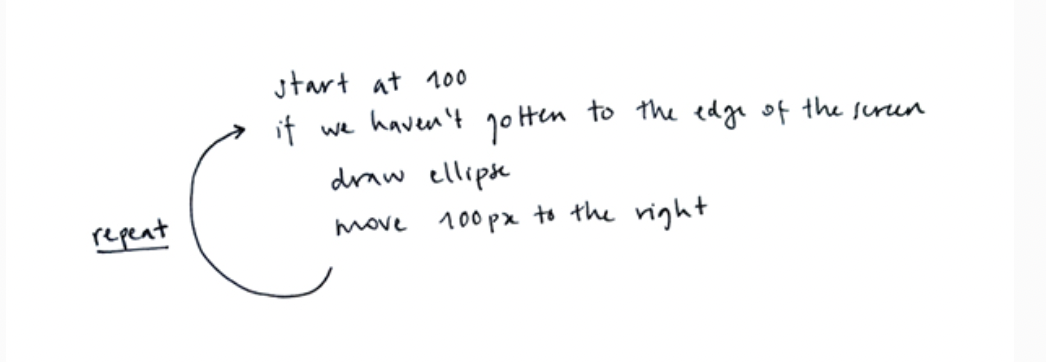 start at 100
if we haven't gotten to the edge of the screen
draw ellipse
move 100px to the right
repeat